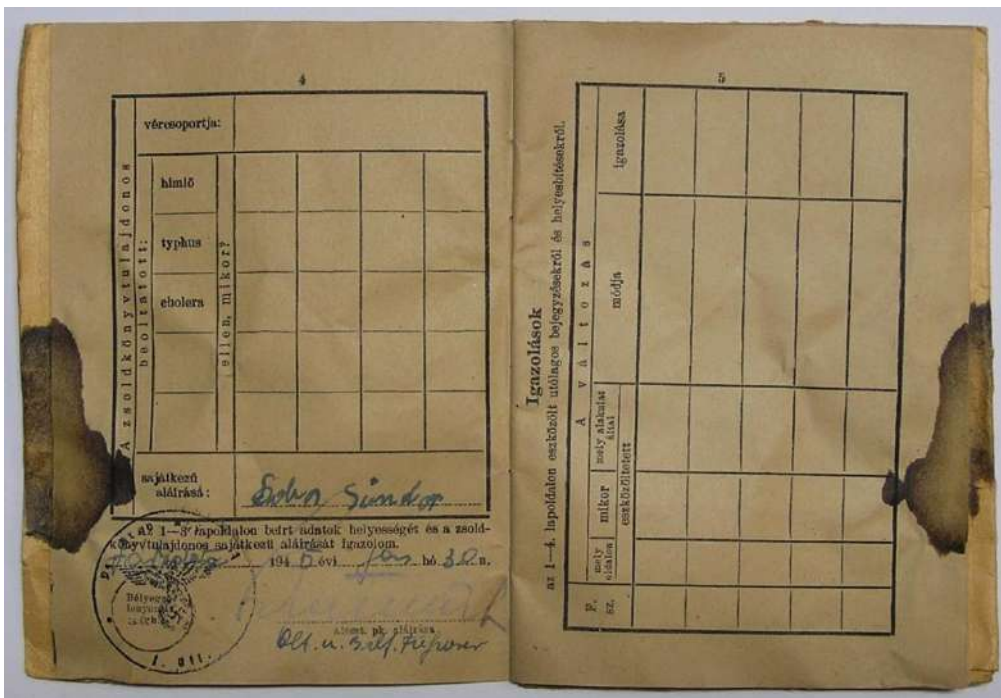 4
A zsoldkönyvtulajdonos
vércsoportja:
beoltatott:
himlő
typhus
cholera
ellen, mikor?
sajátkezű
aláírása:
Sándor
az 1—3 lapoldalon beírt adatok helyességét és a zsold-
könyvtulajdonos sajátkezű aláírását igazolom.
194 5 évi jan hó 30 n.
pk. aláírása
I.
5
Igazolások
az 1—4. lapoldalon eszközölt utólagos bejegyzésekről és helyesbítésekről.
A változás
F.
sz.
mely
oldalon
mikor
mely alakulat
által
eszközöltetett
módja
igazolása